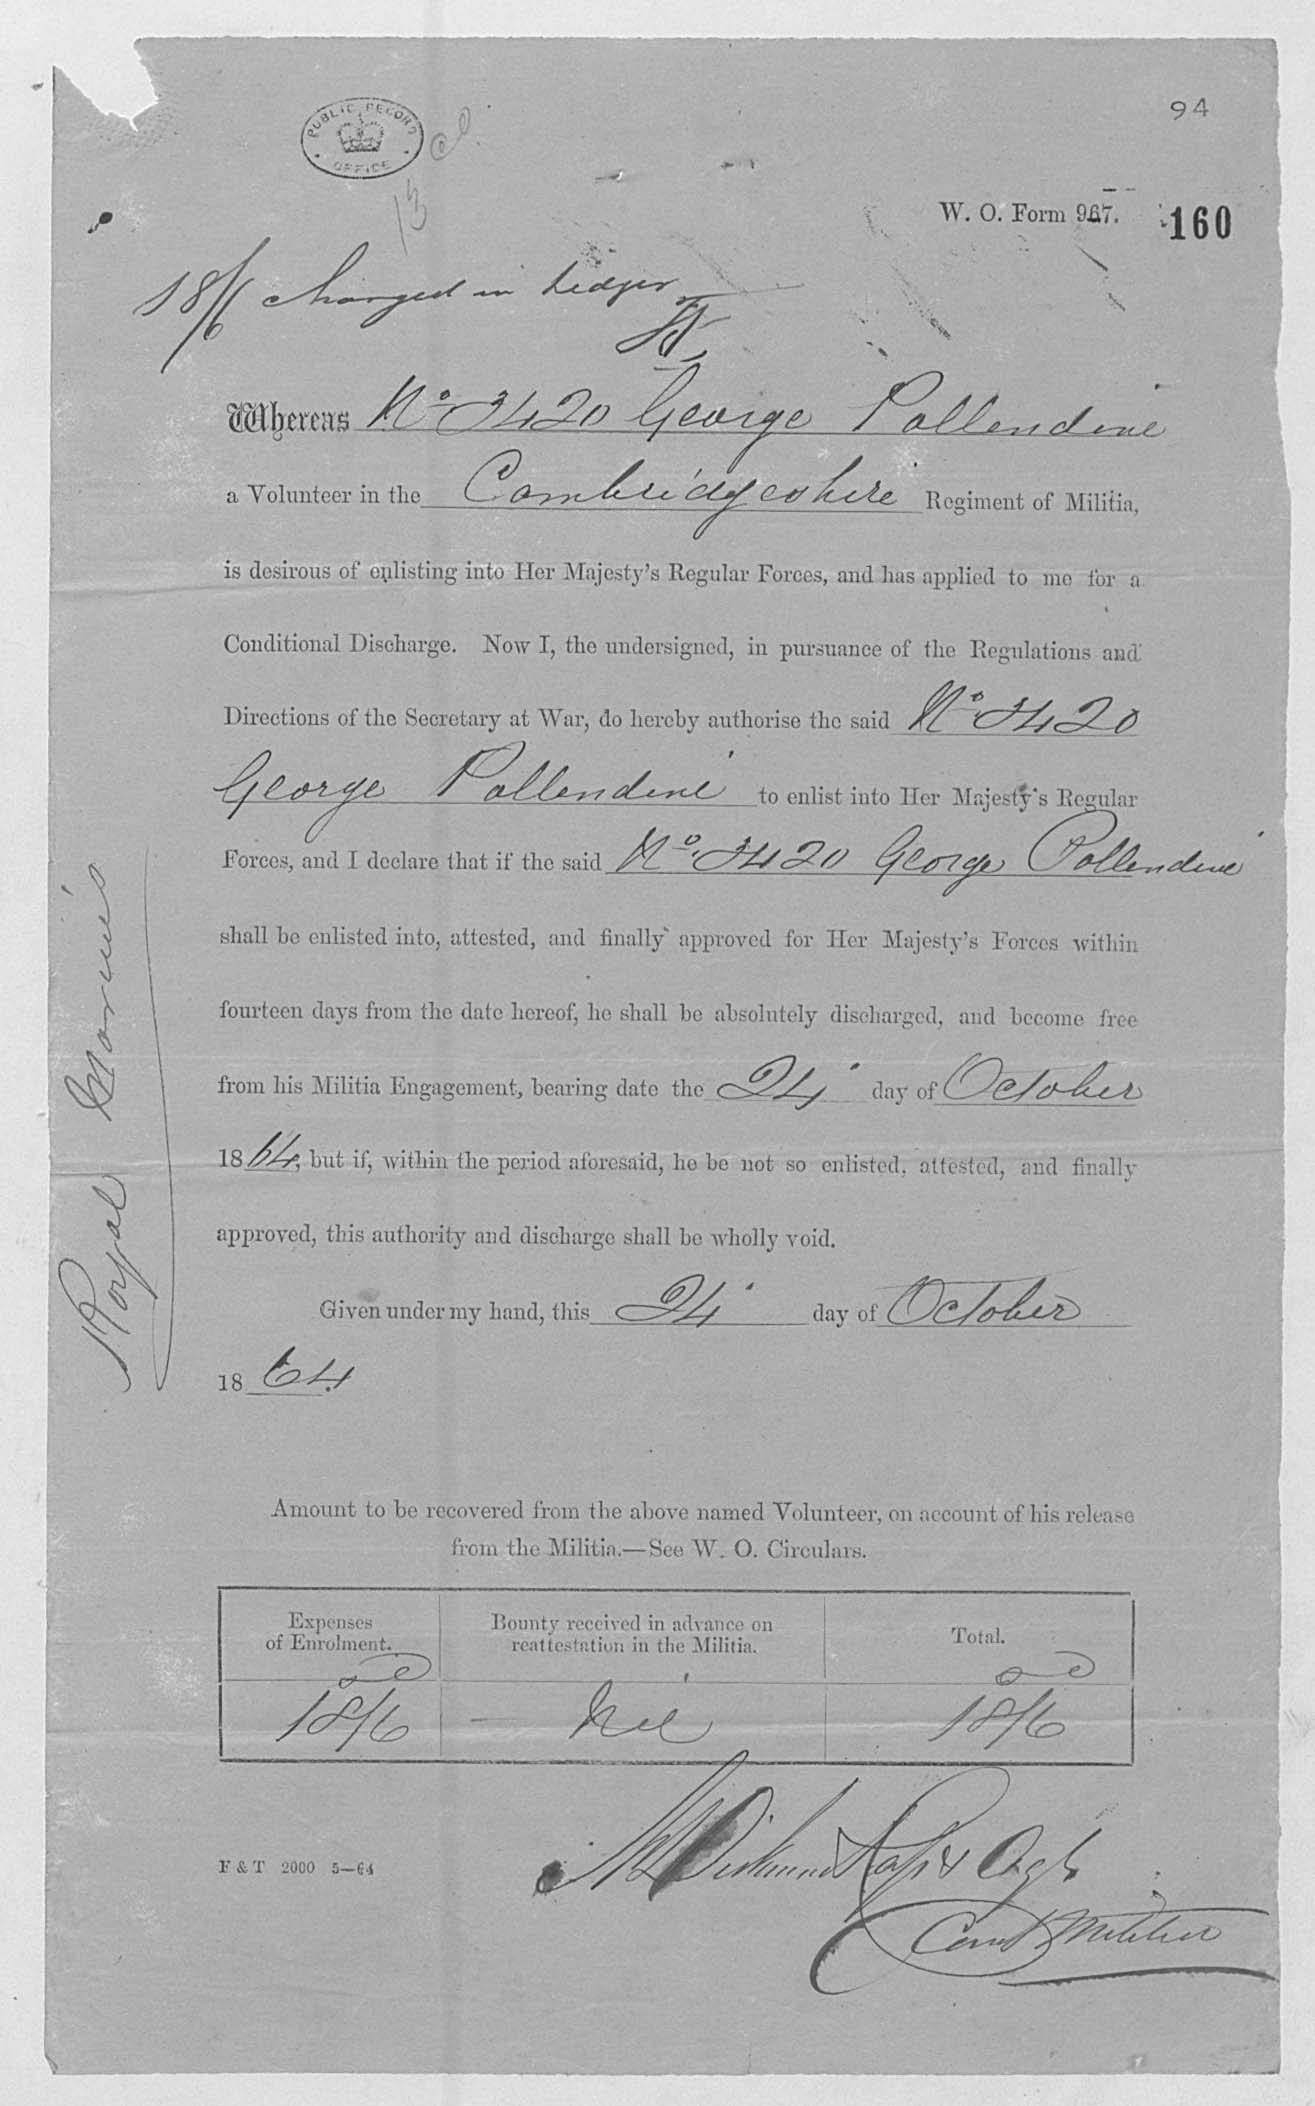 94
PUBLIC RECORD OFFICE
13
W. O. Form 967.
160
18/6 charged in Ledger
Whereas No 3420 George Pollendine
a Volunteer in the Cambridgeshire Regiment of Militia,
is desirous of enlisting into Her Majesty's Regular Forces, and has applied to me for a
Conditional Discharge. Now I, the undersigned, in pursuance of the Regulations and
Directions of the Secretary at War, do hereby authorise the said No 3420
George Pollendine to enlist into Her Majesty's Regular
Forces, and I declare that if the said No. 3420 George Pollendine
shall be enlisted into, attested, and finally approved for Her Majesty's Forces within
fourteen days from the date hereof, he shall be absolutely discharged, and become free
from his Militia Engagement, bearing date the 24 day of October
1864, but if, within the period aforesaid, he be not so enlisted, attested, and finally
approved, this authority and discharge shall be wholly void.
Given under my hand, this 24 day of October
1864.
Royal Marines
Amount to be recovered from the above named Volunteer, on account of his release
from the Militia.—See W. O. Circulars.
Expenses of Enrolment.
Bounty received in advance on reattestation in the Militia.
Total.
s d
s d
18/6
Nil
18/6
F & T 2000 5—64
Capt & Adjt
Camb Militia